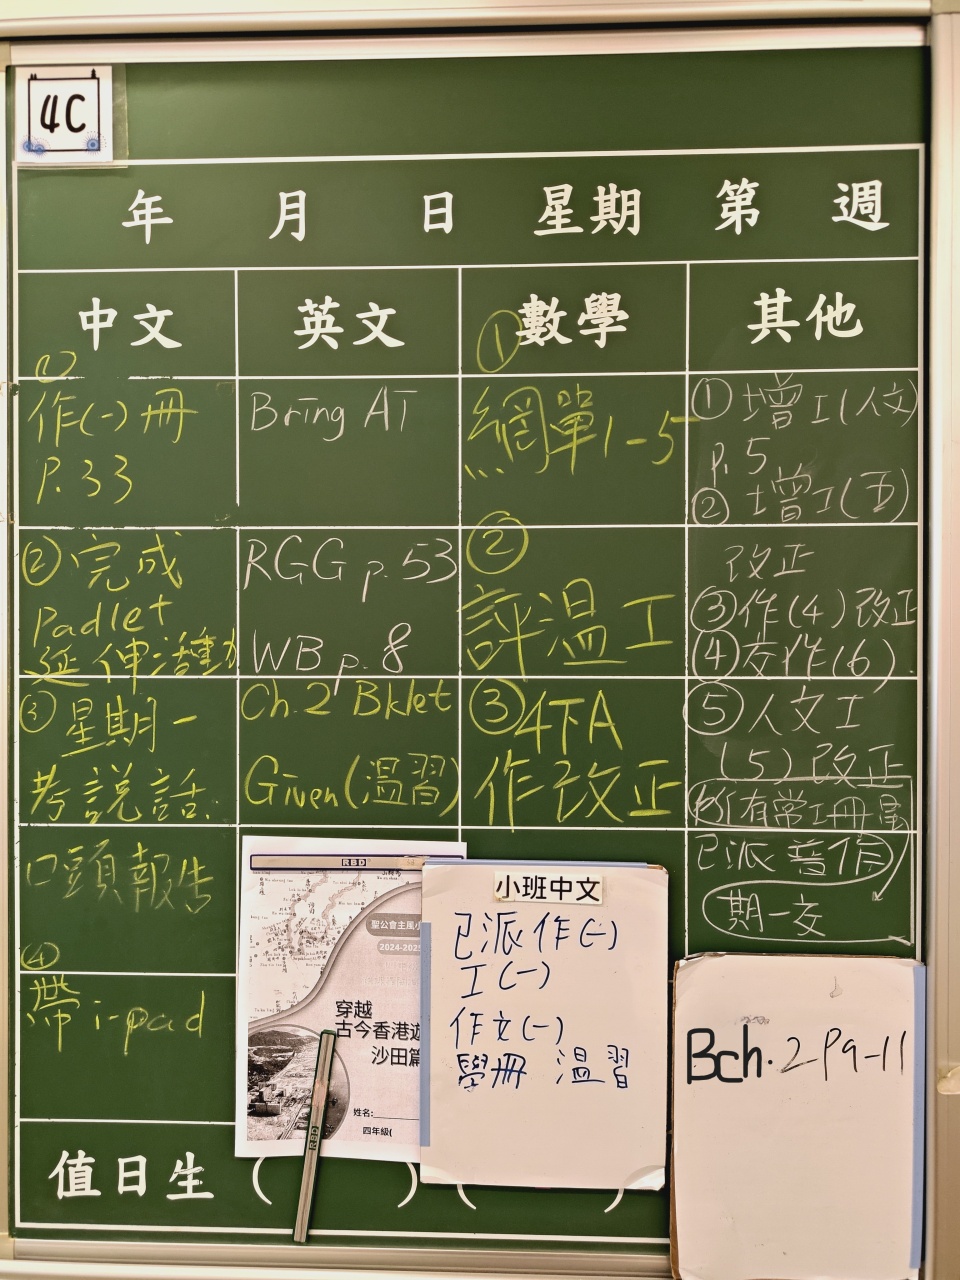 4C
年 月 日 星期 第 週
中文
①
作(一)冊
P.33
②完成
Padlet
延伸活動
③星期一
考說話
口頭報告
④
帶i-pad
英文
Bring AT
RGG p.53
WB p.8
Ch.2 Bklet
Given(溫習)
①數學
網單1-5
②
評溫工
③4下A
作改正
其他
①增工(人文)
p.5
②增工(五)
改正
③作(4)改正
④交作(6).
⑤人文工
(5)改正
所有常工冊
已派 作
期一交
RBD
聖公會主風小
2024-202
穿越
古今香港遊
沙田篇
姓名:
四年級(
小班中文
已派作(一)
工(一)
作文(一)
學冊 溫習
Bch.2 P9-11
值日生 ( ) ( )